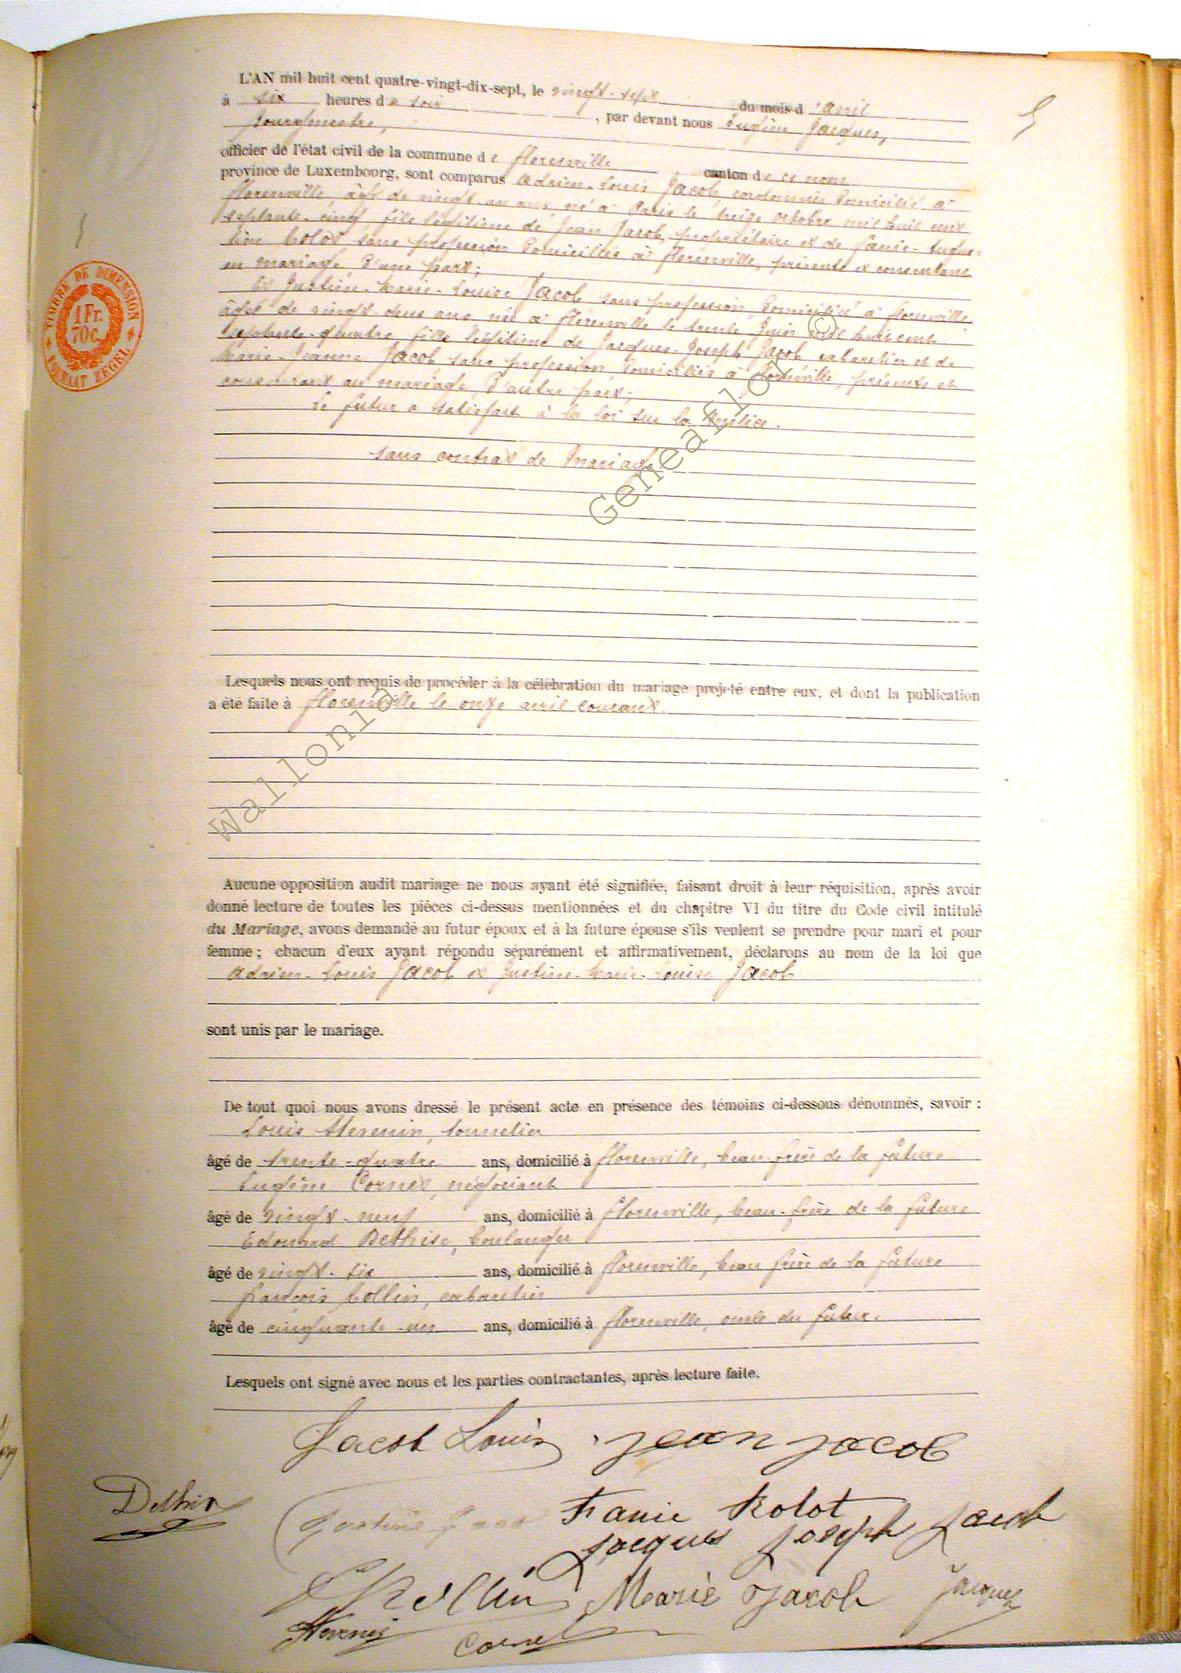 L'AN mil huit cent quatre-vingt-dix-sept, le vingt-sept du mois d'avril
à six heures du soir, par devant nous Eugène Jacques,
bourgmestre,
officier de l'état civil de la commune de Florenville canton de ce nom
province de Luxembourg, sont comparus Adrien-Louis Jacob, cordonnier domicilié à
Florenville, âgé de vingt-un ans né à Paris le treize octobre mil huit cent
septante-cinq fils légitime de Jean Jacob, propriétaire et de Fanie-
Rolot, sans profession domiciliés à Florenville, présents et consentant
au mariage, d'une part;
Et Justine-Marie-Louise Jacob sans profession, domiciliée à Florenville,
âgée de vingt-deux ans née à Florenville le trente juin mil huit cent
septante-quatre, fille légitime de Jacques-Joseph Jacob cabaretier et de
Marie-Jeanne Jacob sans profession domiciliés à Florenville, présents et
consentant au mariage d'autre part;
Le futur a satisfait à la loi sur la milice.
Sans contrat de mariage
Lesquels nous ont requis de procéder à la célébration du mariage projeté entre eux, et dont la publication
a été faite à Florenville le onze avril courant.
Aucune opposition audit mariage ne nous ayant été signifiée, faisant droit à leur réquisition, après avoir
donné lecture de toutes les pièces ci-dessus mentionnées et du chapitre VI du titre du Code civil intitulé
du Mariage, avons demandé au futur époux et à la future épouse s'ils veulent se prendre pour mari et pour
femme ; chacun d'eux ayant répondu séparément et affirmativement, déclarons au nom de la loi que
Adrien-Louis Jacob et Justine-Marie-Louise Jacob
sont unis par le mariage.
De tout quoi nous avons dressé le présent acte en présence des témoins ci-dessous dénommés, savoir :
Louis tonnelier
âgé de trente-quatre ans, domicilié à Florenville, beau-frère de la future
Eugène Cornet, négociant
âgé de vingt-neuf ans, domicilié à Florenville, beau-frère de la future
Edouard Dethise, boulanger
âgé de vingt-six ans, domicilié à Florenville, beau frère de la future
François Collin, cabaretier
âgé de cinquante-un ans, domicilié à Florenville, oncle du futur.
Lesquels ont signé avec nous et les parties contractantes, après lecture faite.
Jacob Louis Jean Jacob
Justine Jacob Fanie Rolot
Jacques Joseph Jacob
Marie Jacob Jacques
Cornet
TIMBRE DE DIMENSION
1 Fr.
70 c.
FORMAAT ZEGEL
Wallonia Geneallor ©